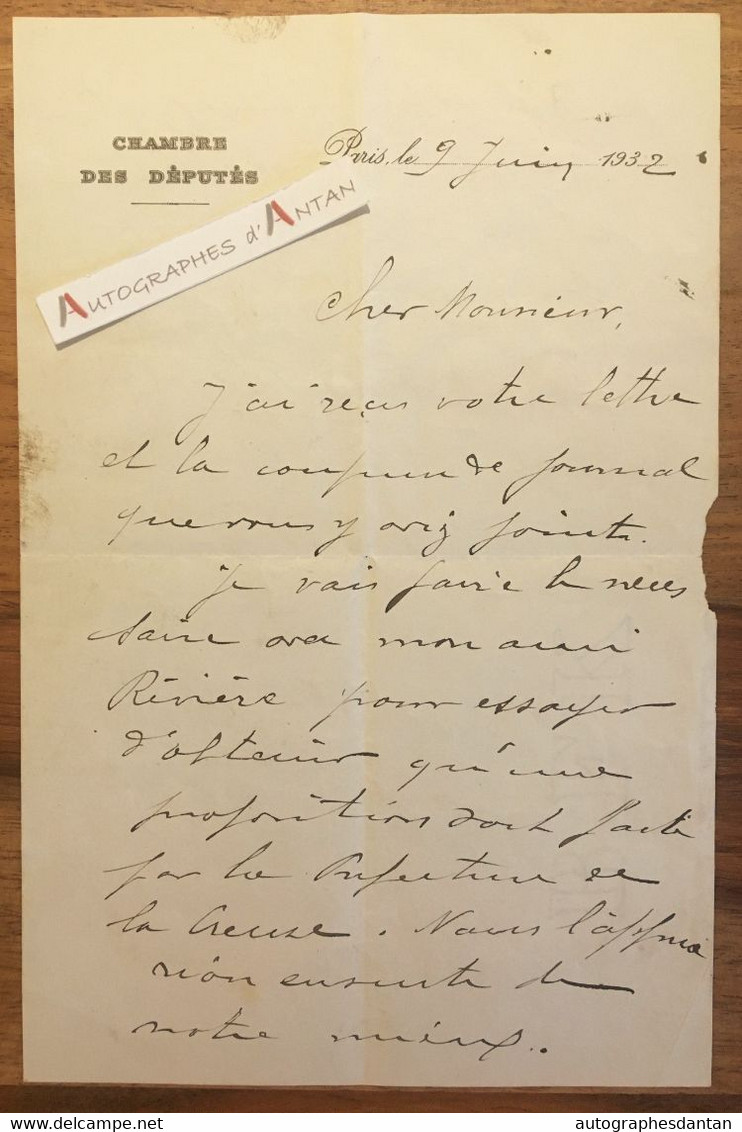 CHAMBRE
DES DÉPUTÉS
Paris, le 9 Juin 1932
AUTOGRAPHES d'ANTAN
Cher Monsieur,
J'ai reçu votre lettre
et la coupure de journal
que vous y aviez jointe.
Je vais faire le néces
saire avec mon ami
Rivière pour essayer
d'obtenir qu'une
proposition soit faite
par la Préfecture de
la Creuse. Nous l'appuie
rions ensuite de
notre mieux.
delcampe.net
autographesdantan